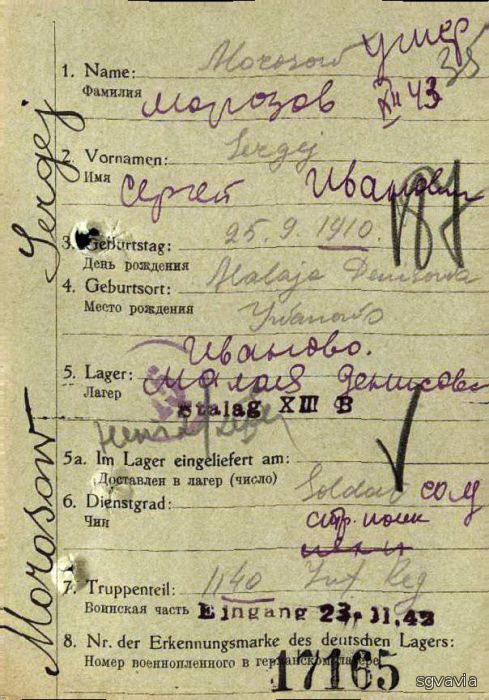 умер
38
1. Name: Morosow
Фамилия Морозов XII 43
2. Vornamen: Sergej
Имя Сергей Иванович
3. Geburtstag: 25. 9. 1910.
День рождения
4. Geburtsort: Malaja Denisowa
Место рождения Iwanowo
Иваново.
5. Lager: Малая Денисова
Лагерь
Stalag XIII B
5a. Im Lager eingeliefert am:
Доставлен в лагерь (число)
6. Dienstgrad: Soldat сол
Чин стр. полк
7. Truppenteil: 1140 Inf Reg
Воинская часть Eingang 23.11.42
8. Nr. der Erkennungsmarke des deutschen Lagers:
Номер военнопленного в германском лагере
17165
Morosow Sergej
sgvavia